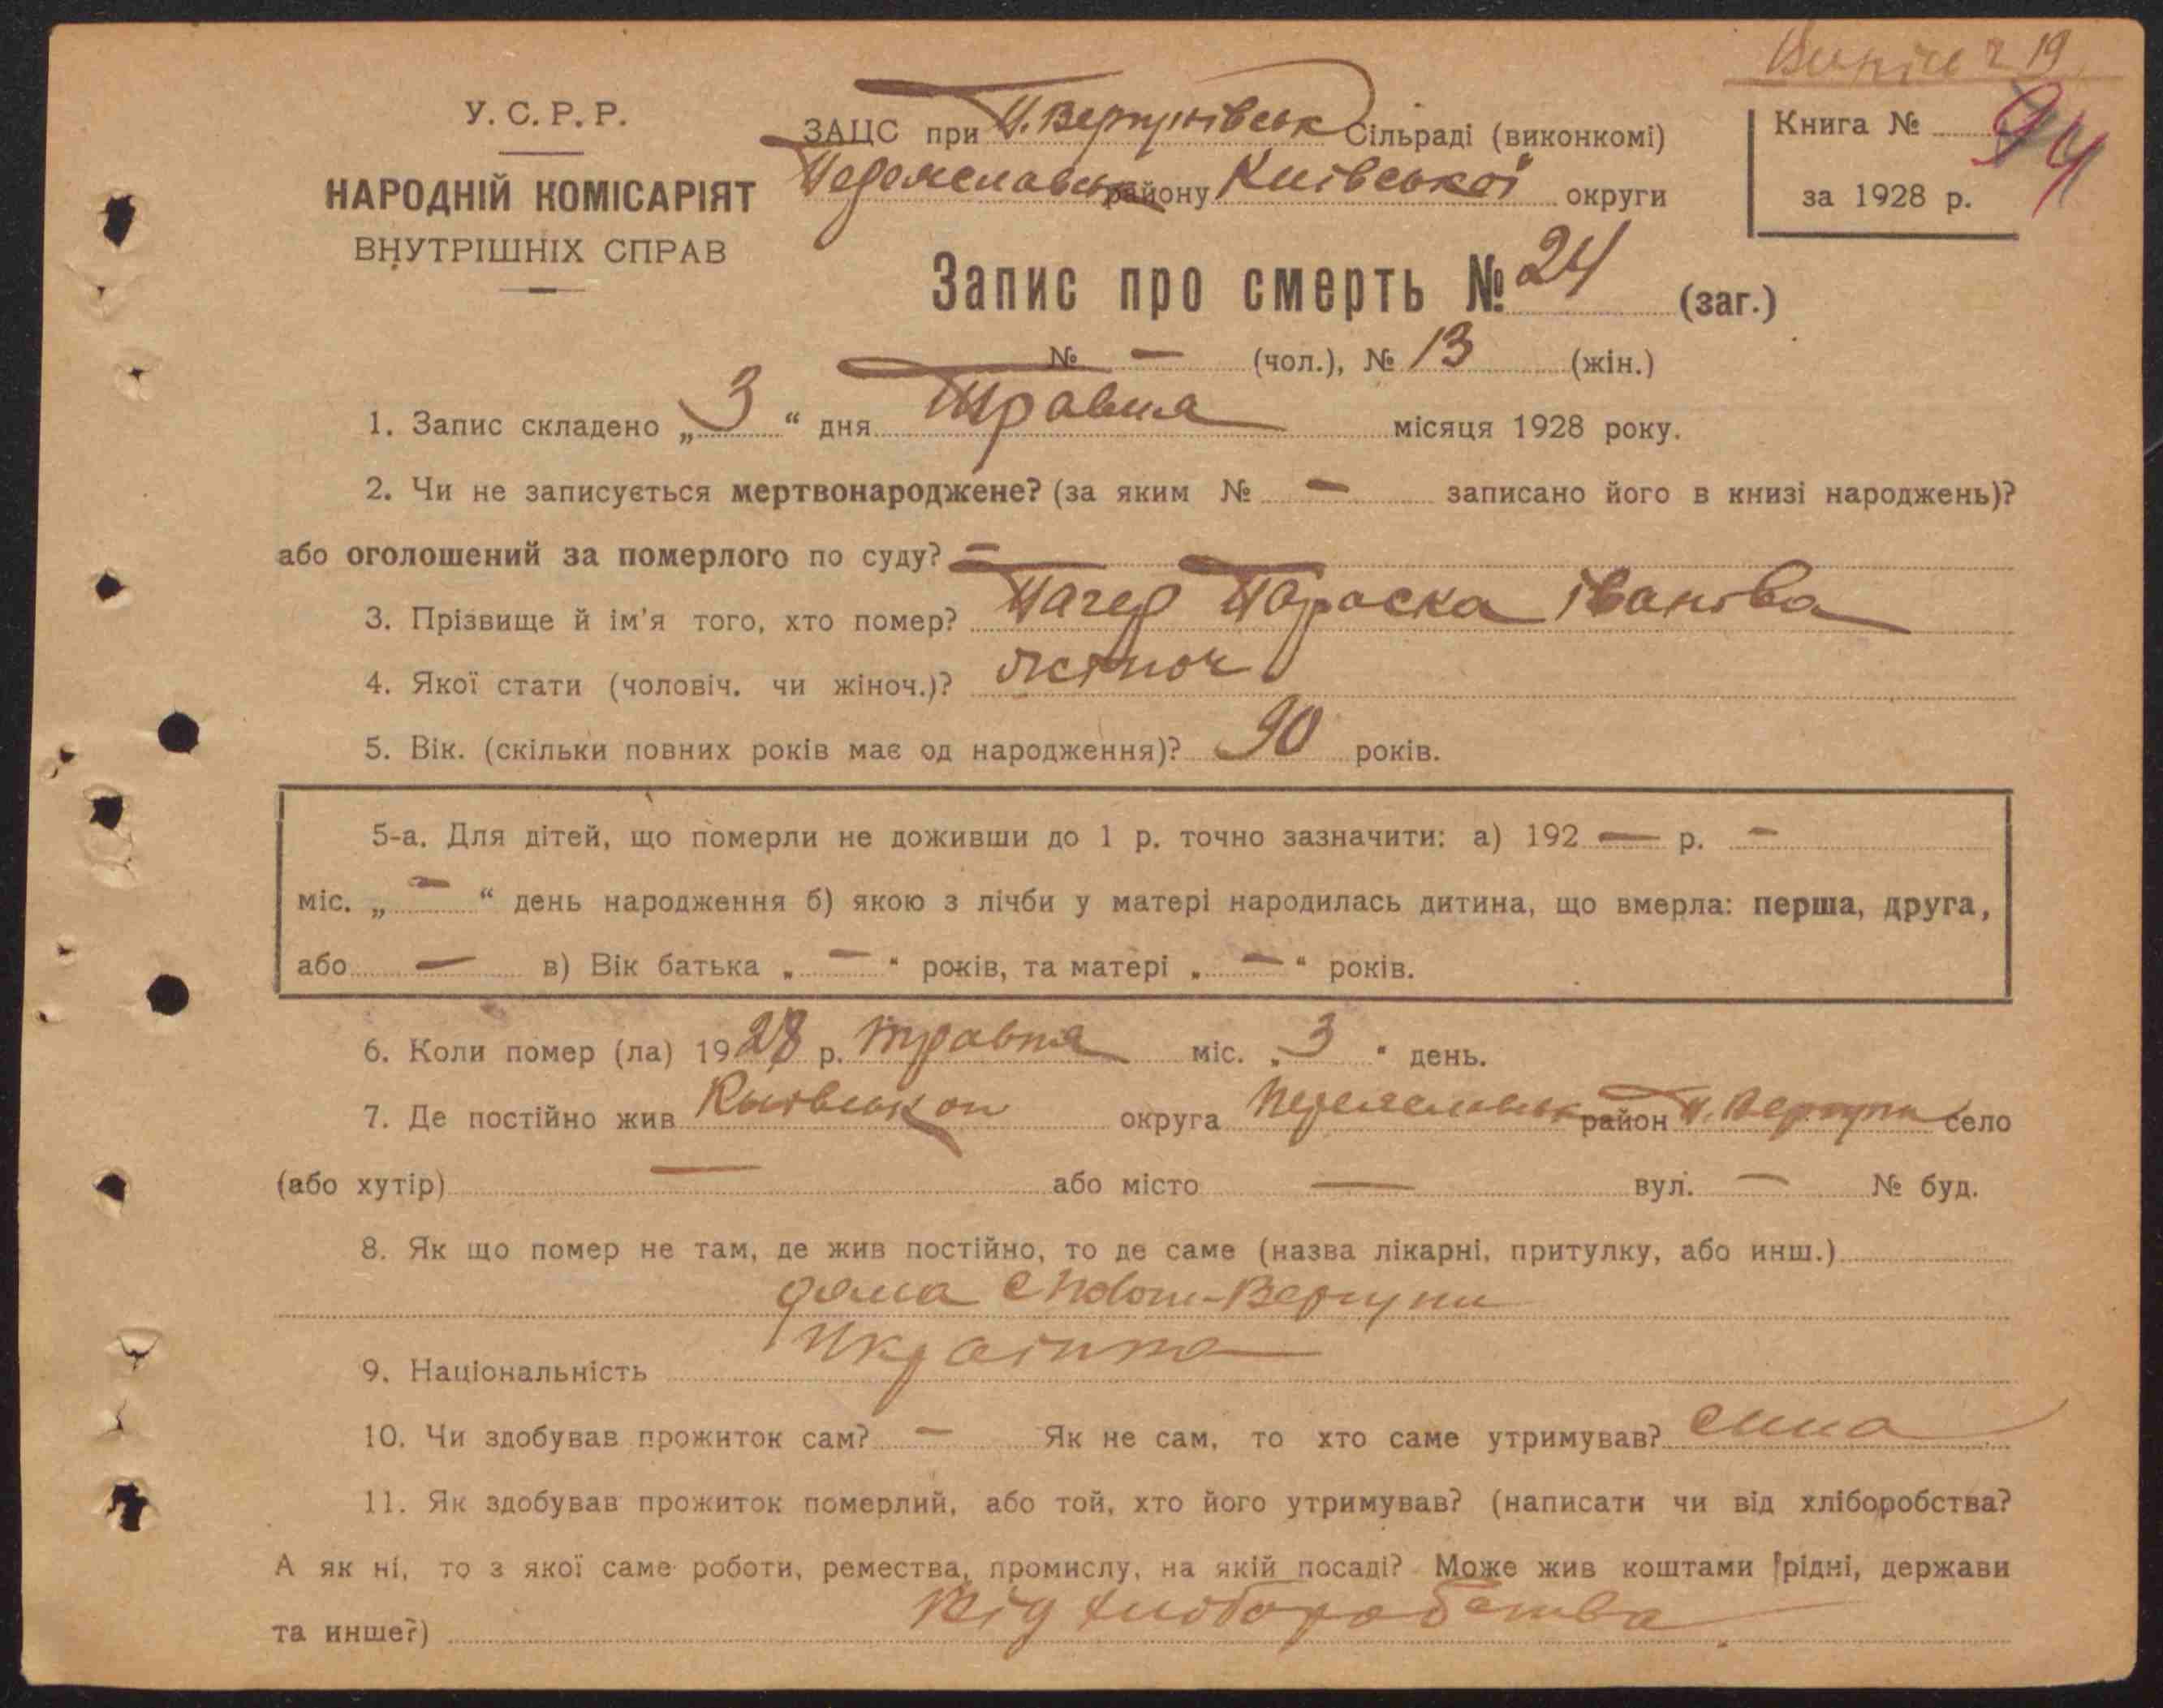 У. С. Р. Р.
НАРОДНІЙ КОМІСАРІЯТ
ВНУТРІШНІХ СПРАВ
19
ЗАЦС при П. Вергунівськ Сільраді (виконкомі)
Переяславськ району Київської округи
Книга №
за 1928 р.
Запис про смерть № 24 (заг.)
№ — (чол.), № 13 (жін.)
1. Запис складено „ 3 “ дня Травня місяця 1928 року.
2. Чи не записується мертвонароджене? (за яким № — записано його в книзі народжень)?
або оголошений за померлого по суду? —
3. Прізвище й ім'я того, хто помер? Параска Іванівна
4. Якої стати (чоловіч. чи жіноч.)? жіноч
5. Вік. (скільки повних років має од народження)? 90 років.
5-а. Для дітей, що померли не доживши до 1 р. точно зазначити: а) 192 — р. —
міс. „ — “ день народження б) якою з лічби у матері народилась дитина, що вмерла: перша, друга,
або — в) Вік батька „ — “ років, та матері „ — “ років.
6. Коли помер (ла) 1928 р. травня міс. „ 3 “ день.
7. Де постійно жив Київськои округа Переяславськ район П. Вергуни село
(або хутір) — або місто — вул. — № буд.
8. Як що помер не там, де жив постійно, то де саме (назва лікарні, притулку, або инш.)
дома Вергуни
9. Національність Україінка
10. Чи здобував прожиток сам? — Як не сам, то хто саме утримував? сина
11. Як здобував прожиток померлий, або той, хто його утримував? (написати чи від хліборобства?
А як ні, то з якої саме роботи, ремества, промислу, на якій посаді? Може жив коштами рідні, держави
та инше?) Від хліборобства